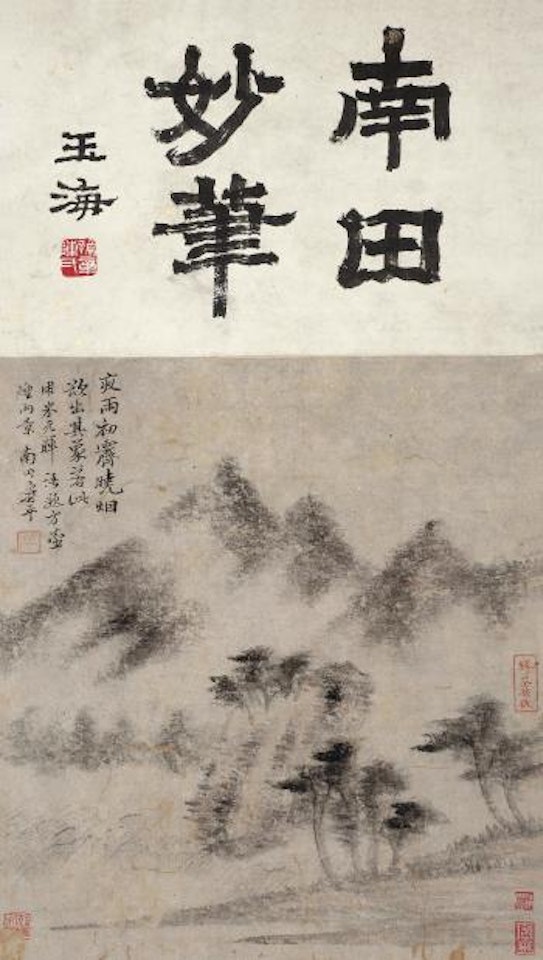 南田
妙筆
玉海
夜雨初霽曉烟
欲出其象若此
用米元暉 方壺
雨景 南田壽平